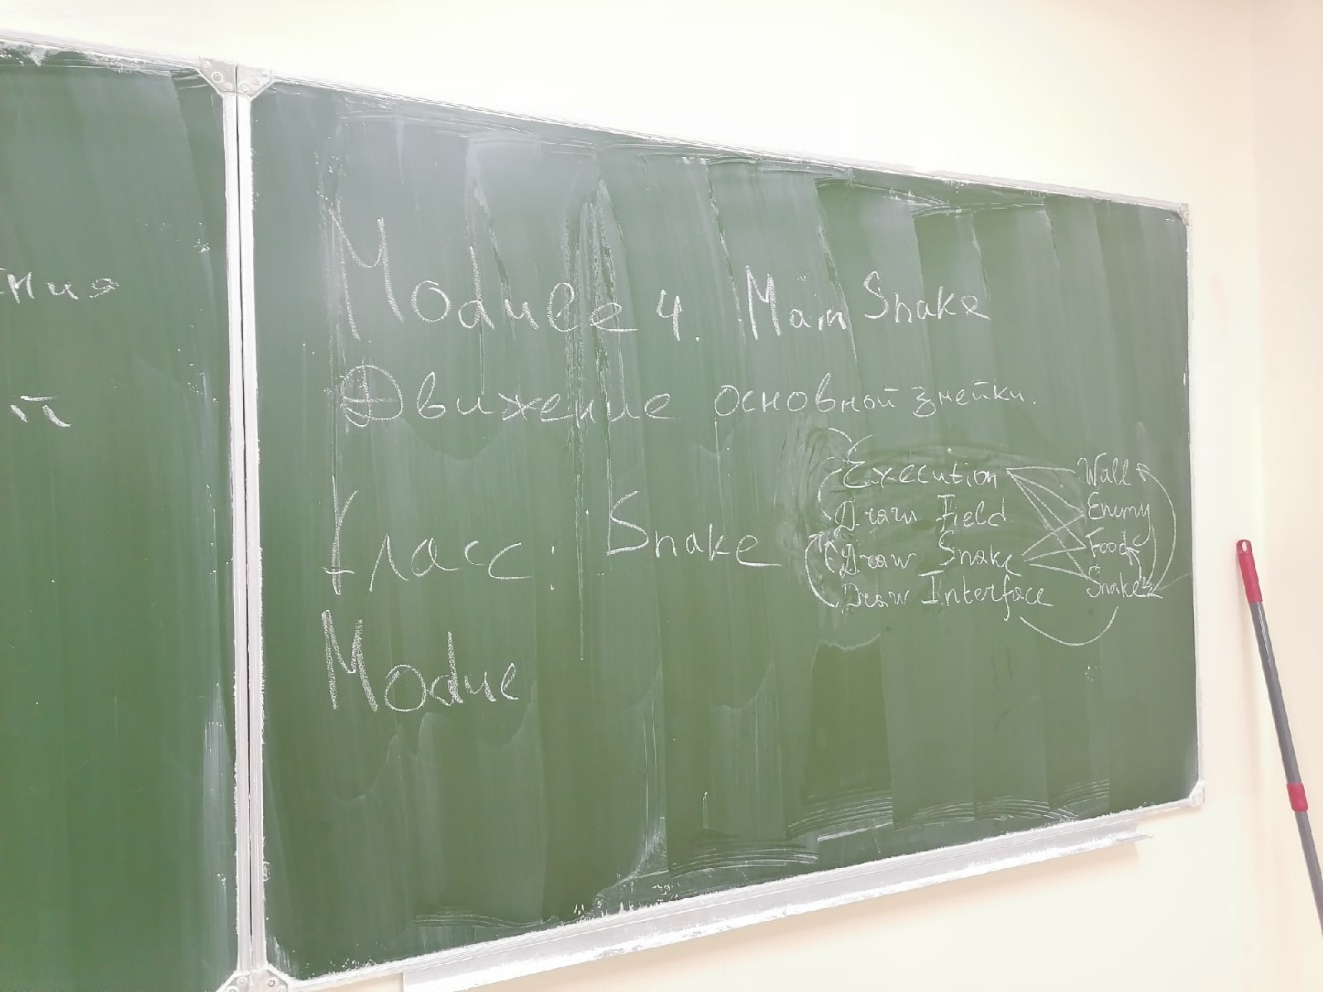 ения
й
Module 4. Main Snake
Движение основной змейки.
Класс: Snake
Module
Execution
Draw Field
Draw Snake
Draw Interface
Wall
Enemy
Food
Snake